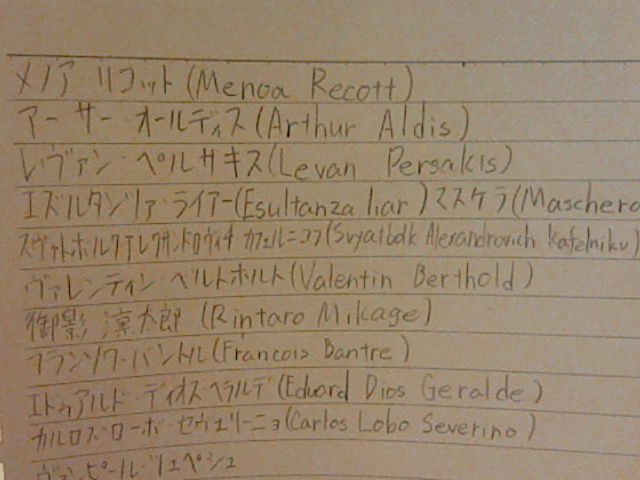 メノア・リコット(Menoa Recott)
アーサー・オールディス(Arthur Aldis)
レヴァン・ペルサキス(Levan Persakis)
エズルタンツァ・ライアー(Esultanza liar)マスケラ(Maschera
スヴャトホルク・アレクサンドロヴィチ カフェルニコフ(Svyatbolk Alexandrovich Kafelnikov)
ヴァレンティン・ベルトホルト(Valentin Berthold)
御影 凛太郎 (Rintaro Mikage)
フランソワ・バントル(Francois Bantre)
エドゥアルド・ディオス・ヘラルデ(Eduard Dios Geralde)
カルロス・ローボ・セヴェリーニョ(Carlos Lobo Severino)
ヴァンピール・ツェペシュ